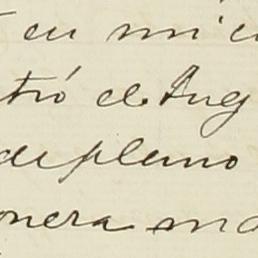 en mi c
tró el Aug
de pleno
onera ma